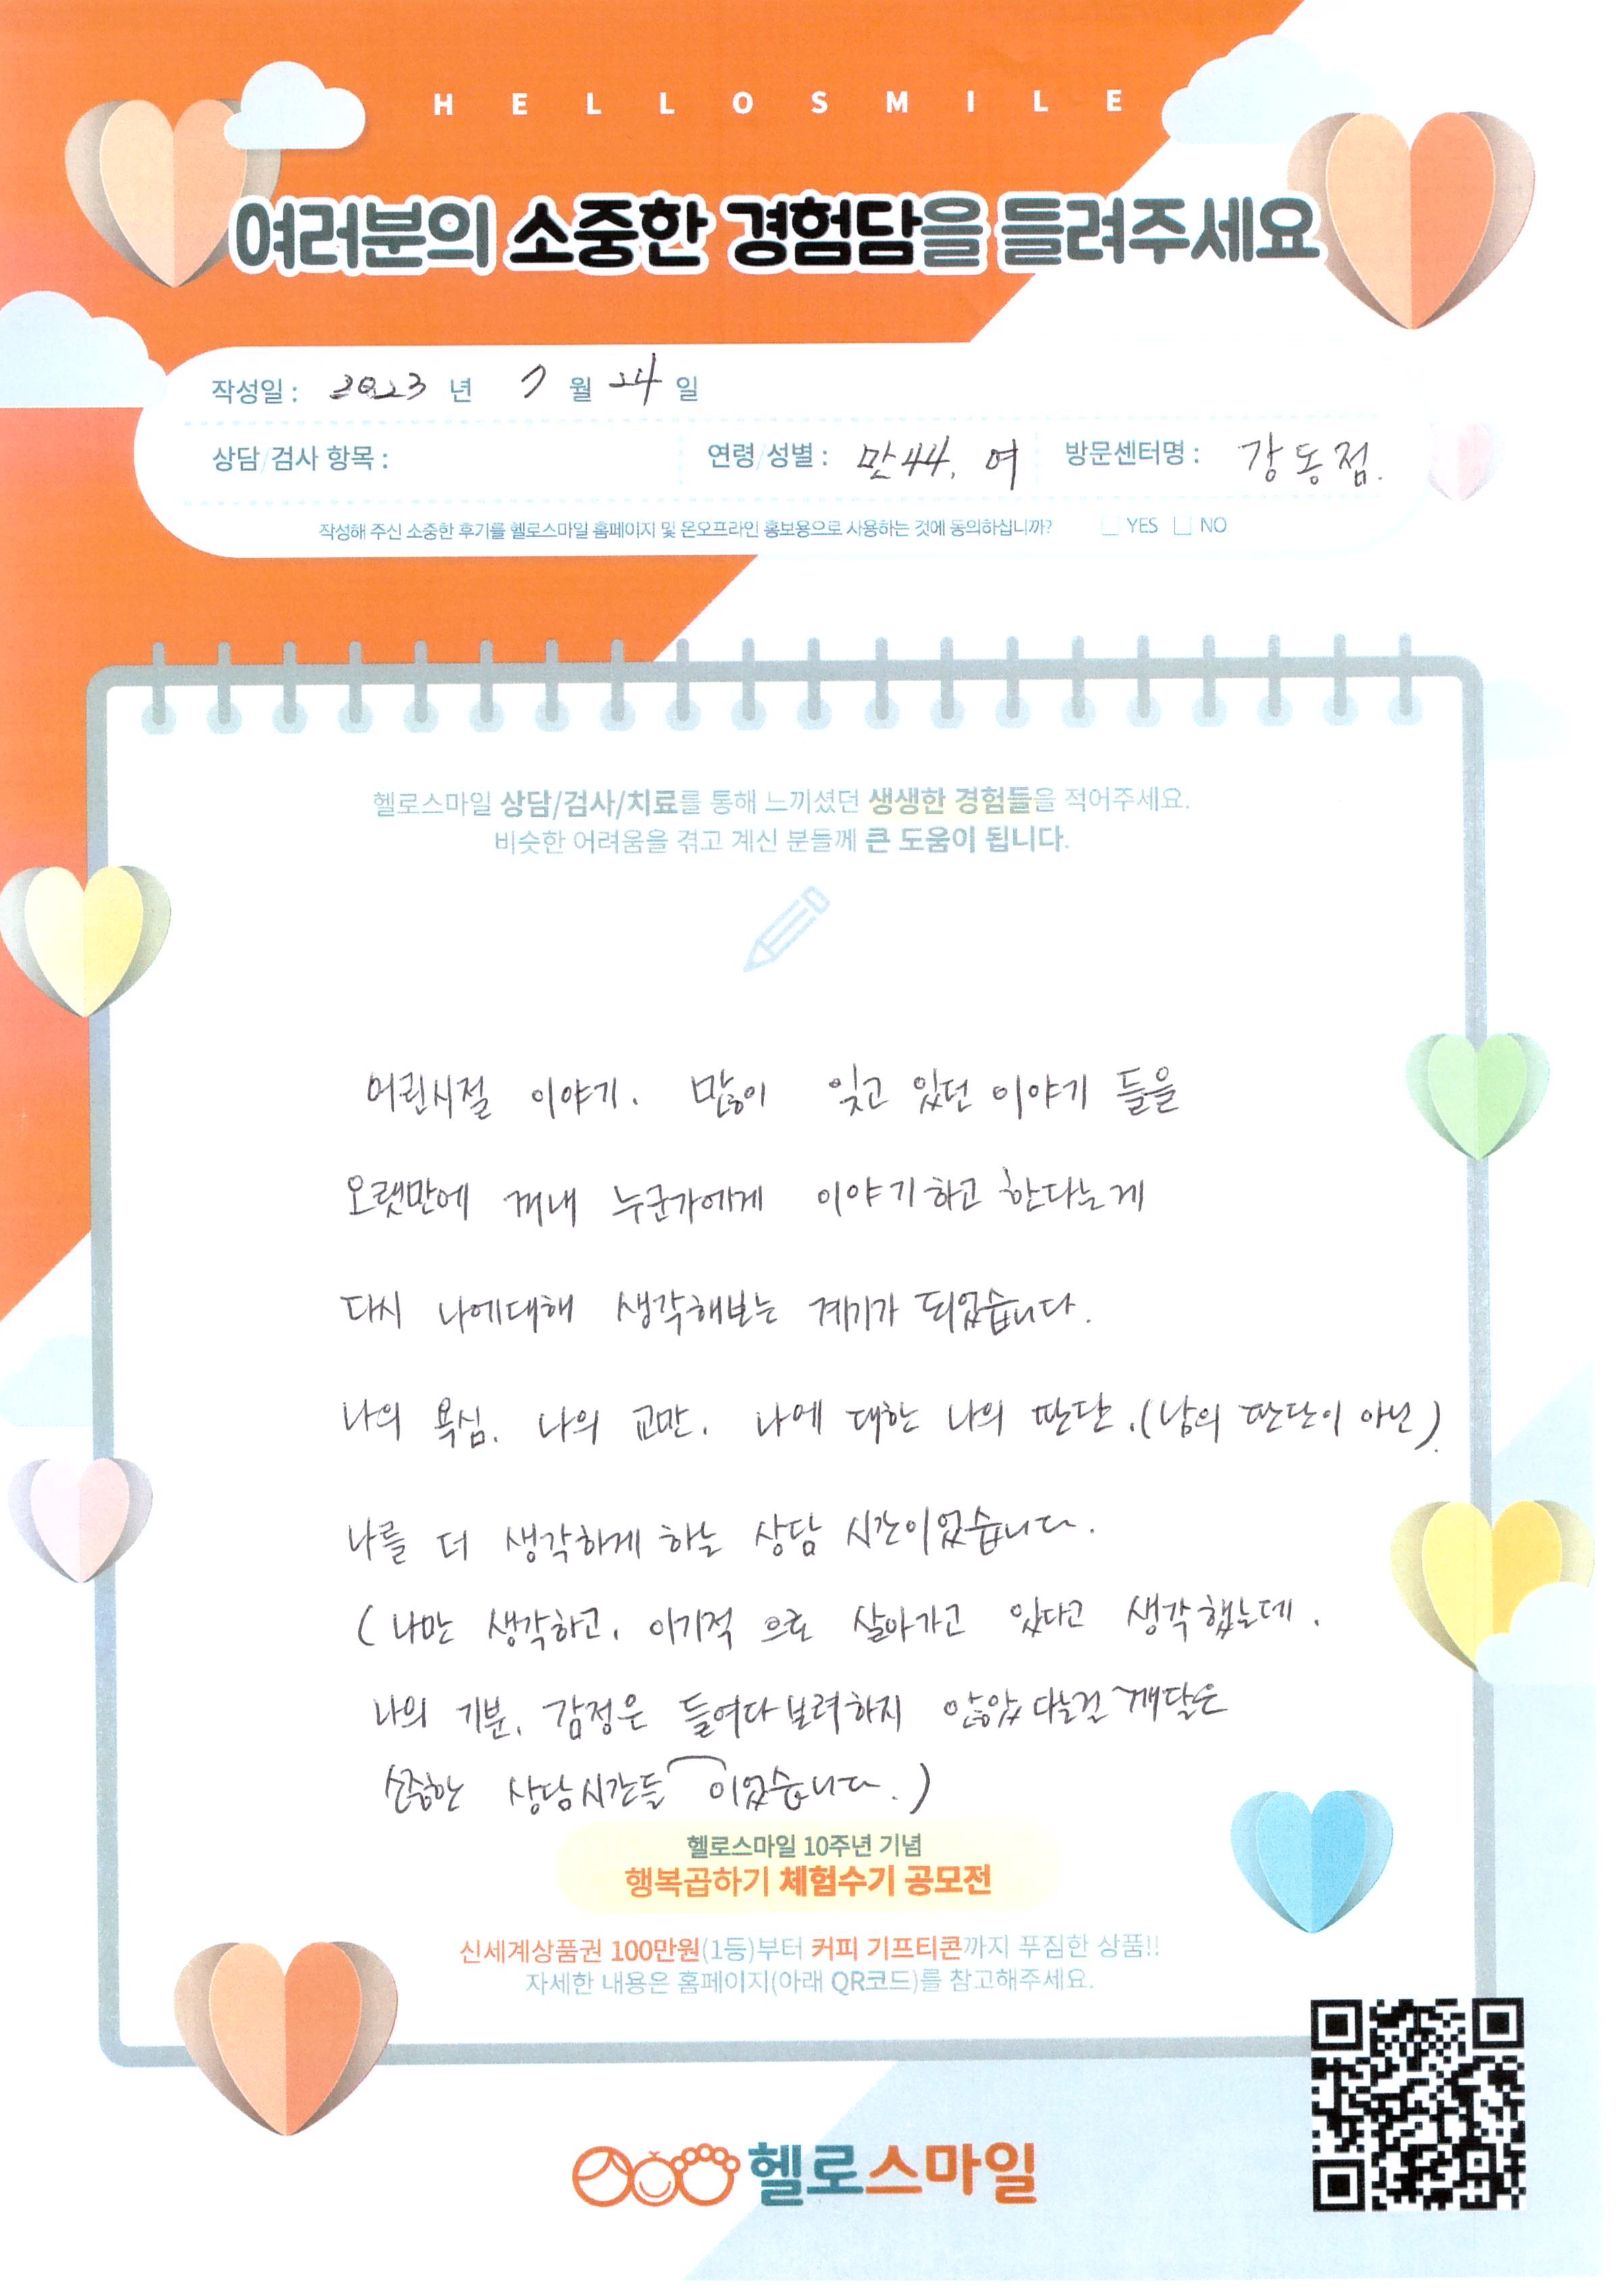 HELLOSMILE
여러분의 소중한 경험담을 들려주세요
작성일 : 2023 년 7 월 24 일
상담/검사 항목 : 연령/성별 : 만44, 여 방문센터명 : 강동점.
작성해 주신 소중한 후기를 헬로스마일 홈페이지 및 온오프라인 홍보용으로 사용하는 것에 동의하십니까? YES NO
헬로스마일 상담/검사/치료를 통해 느끼셨던 생생한 경험들을 적어주세요.
비슷한 어려움을 겪고 계신 분들께 큰 도움이 됩니다.
어린시절 이야기. 많이 잊고 있던 이야기 들을
오랫만에 꺼내 누군가에게 이야기하고 한다는게
다시 나에대해 생각해보는 계기가 되었습니다.
나의 욕심. 나의 교만. 나에 대한 나의 판단.(남의 판단이 아닌).
나를 더 생각하게 하는 상담 시간이었습니다.
(나만 생각하고. 이기적 으로 살아가고 있다고 생각했는데.
나의 기분. 감정은 들여다보려하지 않았다는걸 깨달은
소중한 상담시간들 이었습니다.)
헬로스마일 10주년 기념
행복곱하기 체험수기 공모전
신세계상품권 100만원(1등)부터 커피 기프티콘까지 푸짐한 상품!!
자세한 내용은 홈페이지(아래 QR코드)를 참고해주세요.
헬로스마일